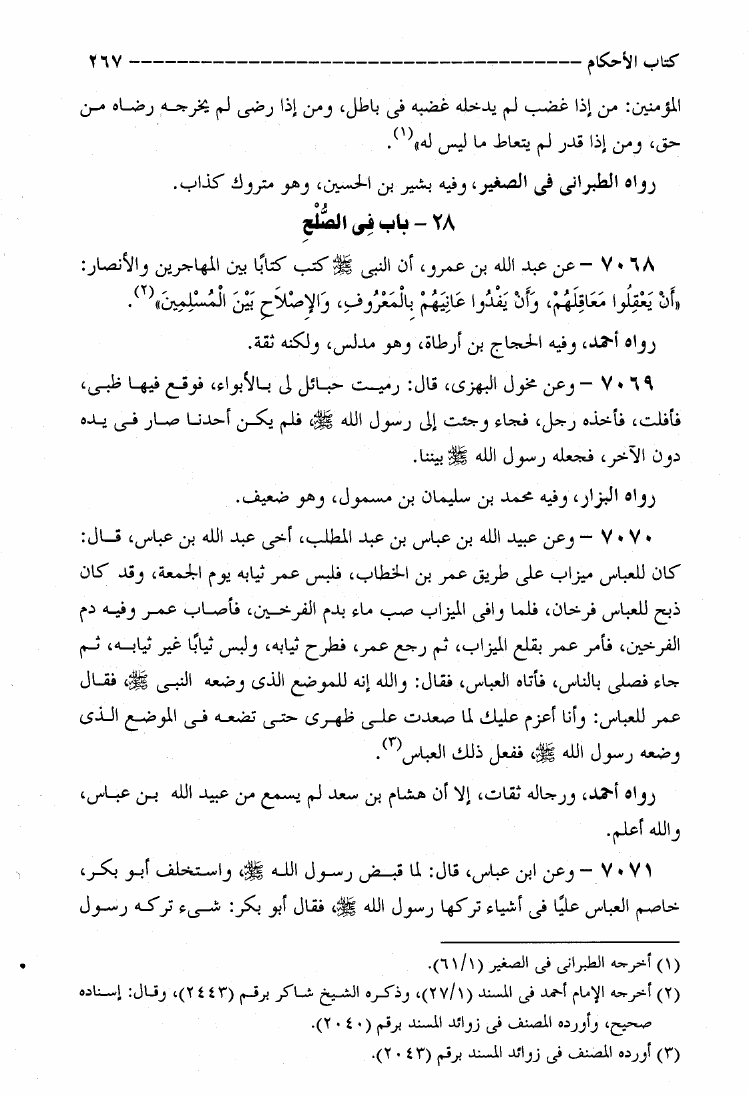 كتاب الأحكام ------------------------------------- ٢٦٧
المؤمنين: من إذا غضب لم يدخله غضبه فى باطل، ومن إذا رضى لم يخرجه رضاه من
حق، ومن إذا قدر لم يتعاط ما ليس له»(١).
رواه الطبرانى فى الصغير، وفيه بشير بن الحسين، وهو متروك كذاب.
٢٨ - باب فِى الصُّلْحِ
٧٠٦٨ - عن عبد الله بن عمرو، أن النبى ﷺ كتب كتابًا بين المهاجرين والأنصار:
«أَنْ يَعْقِلُوا مَعَاقِلَهُمْ، وَأَنْ يَفْدُوا عَانِيَهُمْ بِالْمَعْرُوفِ، وَالإِصْلاَحِ بَيْنَ الْمُسْلِمِينَ»(٢).
رواه أحمد، وفيه الحجاج بن أرطاة، وهو مدلس، ولكنه ثقة.
٧٠٦٩ - وعن مخول البهزى، قال: رميت حبائل لى بالأبواء، فوقع فيها ظبى،
فأفلت، فأخذه رجل، فجاء وجئت إلى رسول الله ﷺ، فلم يكن أحدنا صار فى يده
دون الآخر، فجعله رسول الله ﷺ بيننا.
رواه البزار، وفيه محمد بن سليمان بن مسمول، وهو ضعيف.
٧٠٧٠ - وعن عبيد الله بن عباس بن عبد المطلب، أخى عبد الله بن عباس، قال:
كان للعباس ميزاب على طريق عمر بن الخطاب، فلبس عمر ثيابه يوم الجمعة، وقد كان
ذبح للعباس فرخان، فلما وافى الميزاب صب ماء بدم الفرخين، فأصاب عمر وفيه دم
الفرخين، فأمر عمر بقلع الميزاب، ثم رجع عمر، فطرح ثيابه، ولبس ثيابًا غير ثيابه، ثم
جاء فصلى بالناس، فأتاه العباس، فقال: والله إنه للموضع الذى وضعه النبى ﷺ، فقال
عمر للعباس: وأنا أعزم عليك لما صعدت على ظهرى حتى تضعه فى الموضع الذى
وضعه رسول الله ﷺ، ففعل ذلك العباس(٣).
رواه أحمد، ورجاله ثقات، إلا أن هشام بن سعد لم يسمع من عبيد الله بن عباس،
والله أعلم.
٧٠٧١ - وعن ابن عباس، قال: لما قبض رسول الله ﷺ، واستخلف أبو بكر،
خاصم العباس عليًا فى أشياء تركها رسول الله ﷺ، فقال أبو بكر: شىء تركه رسول
(١) أخرجه الطبرانى فى الصغير (٦١/١).
(٢) أخرجه الإمام أحمد فى المسند (٢٧/١)، وذكره الشيخ شاكر برقم (٢٤٤٣)، وقال: إسناده
صحيح، وأورده المصنف فى زوائد المسند برقم (٢٠٤٠).
(٣) أورده المصنف فى زوائد المسند برقم (٢٠٤٣).